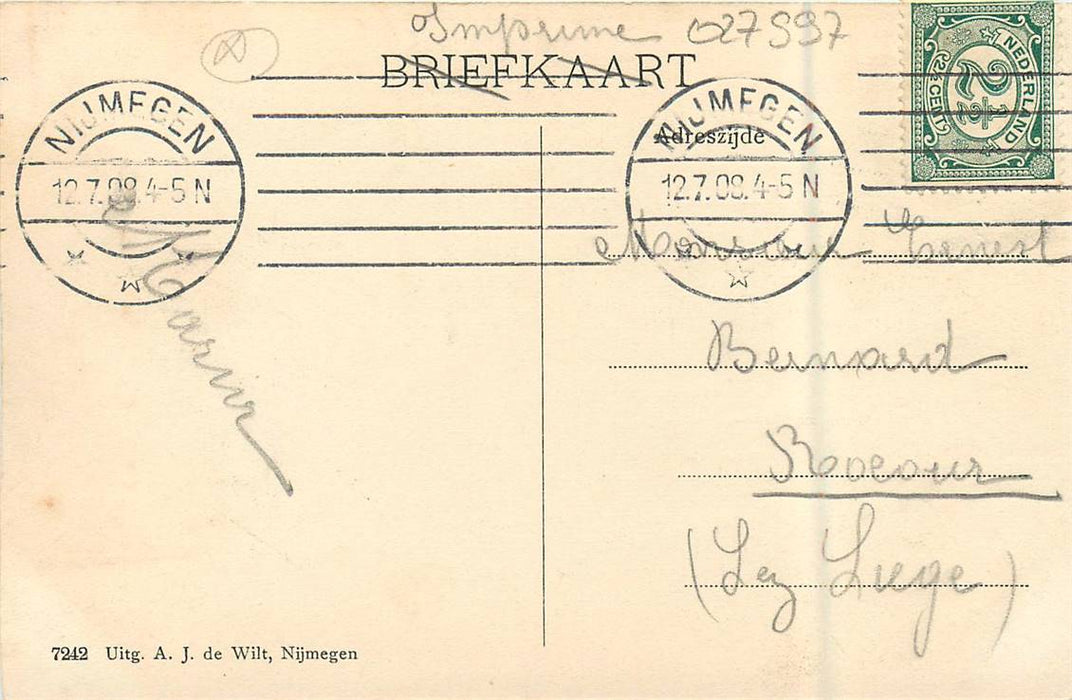 Imprime 027997
BRIEFKAART
Adreszijde
NEDERLAND
2½
CENT
NIJMEGEN
12.7.08.4-5 N
NIJMEGEN
12.7.08.4-5 N
Monsieur Ernest
Bernard
Rocour
(Lez Liege)
7242 Uitg. A. J. de Wilt, Nijmegen